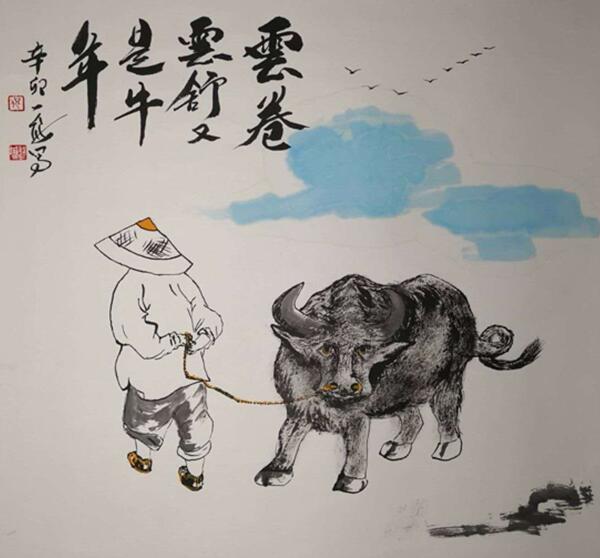 雲卷
雲舒又
是牛
年
辛卯一写